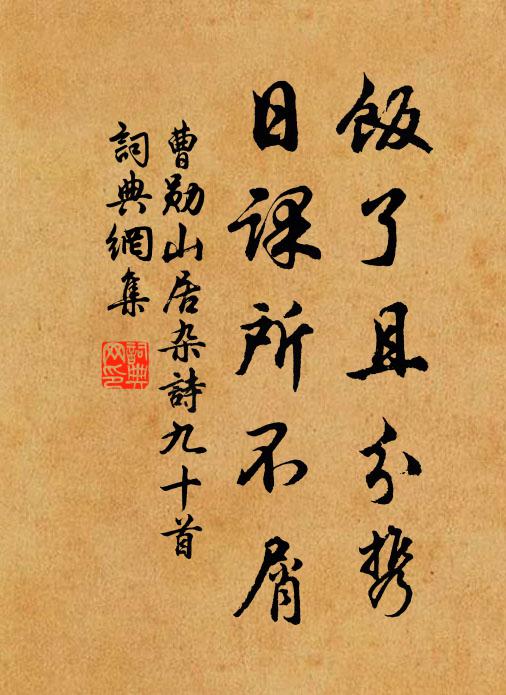 飯了且分携
日課所不屑
曹勛山居杂詩九十首
詞典網集
詞典網印